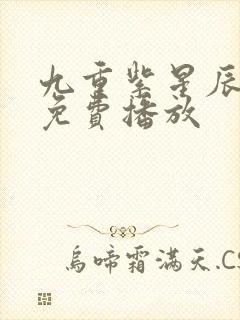 九重紫星辰
免費播放
烏啼霜滿天.CS